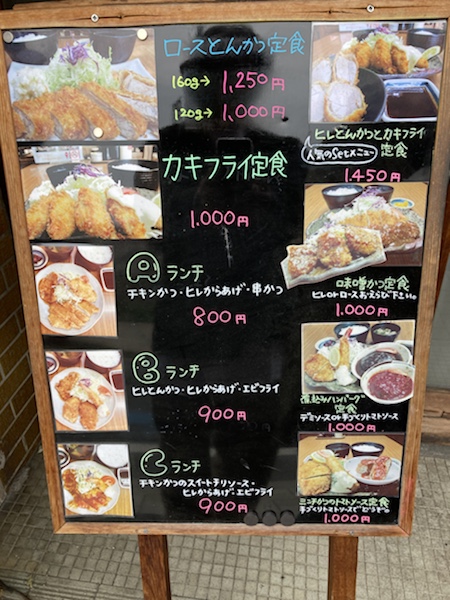 ロースとんかつ定食
160g→ 1,250円
120g→ 1,000円
カキフライ定食
1.000円
A ランチ
チキンかつ・ヒレからあげ・串かつ
800円
B ランチ
ヒレとんかつ・ヒレからあげ・エビフライ
900円
C ランチ
チキンかつのスイートチリソース・
ヒレからあげ・エビフライ
900円
ヒレとんかつとカキフライ
人気のSetメニュー 定食
1.450円
味噌かつ定食
ヒレorロースお選び下さい
1.000円
煮込みハンバーグ
定食
デミソースor手づくりトマトソース
1.000円
ミンチかつのトマトソース定食
手づくりトマトソースで
1.000円